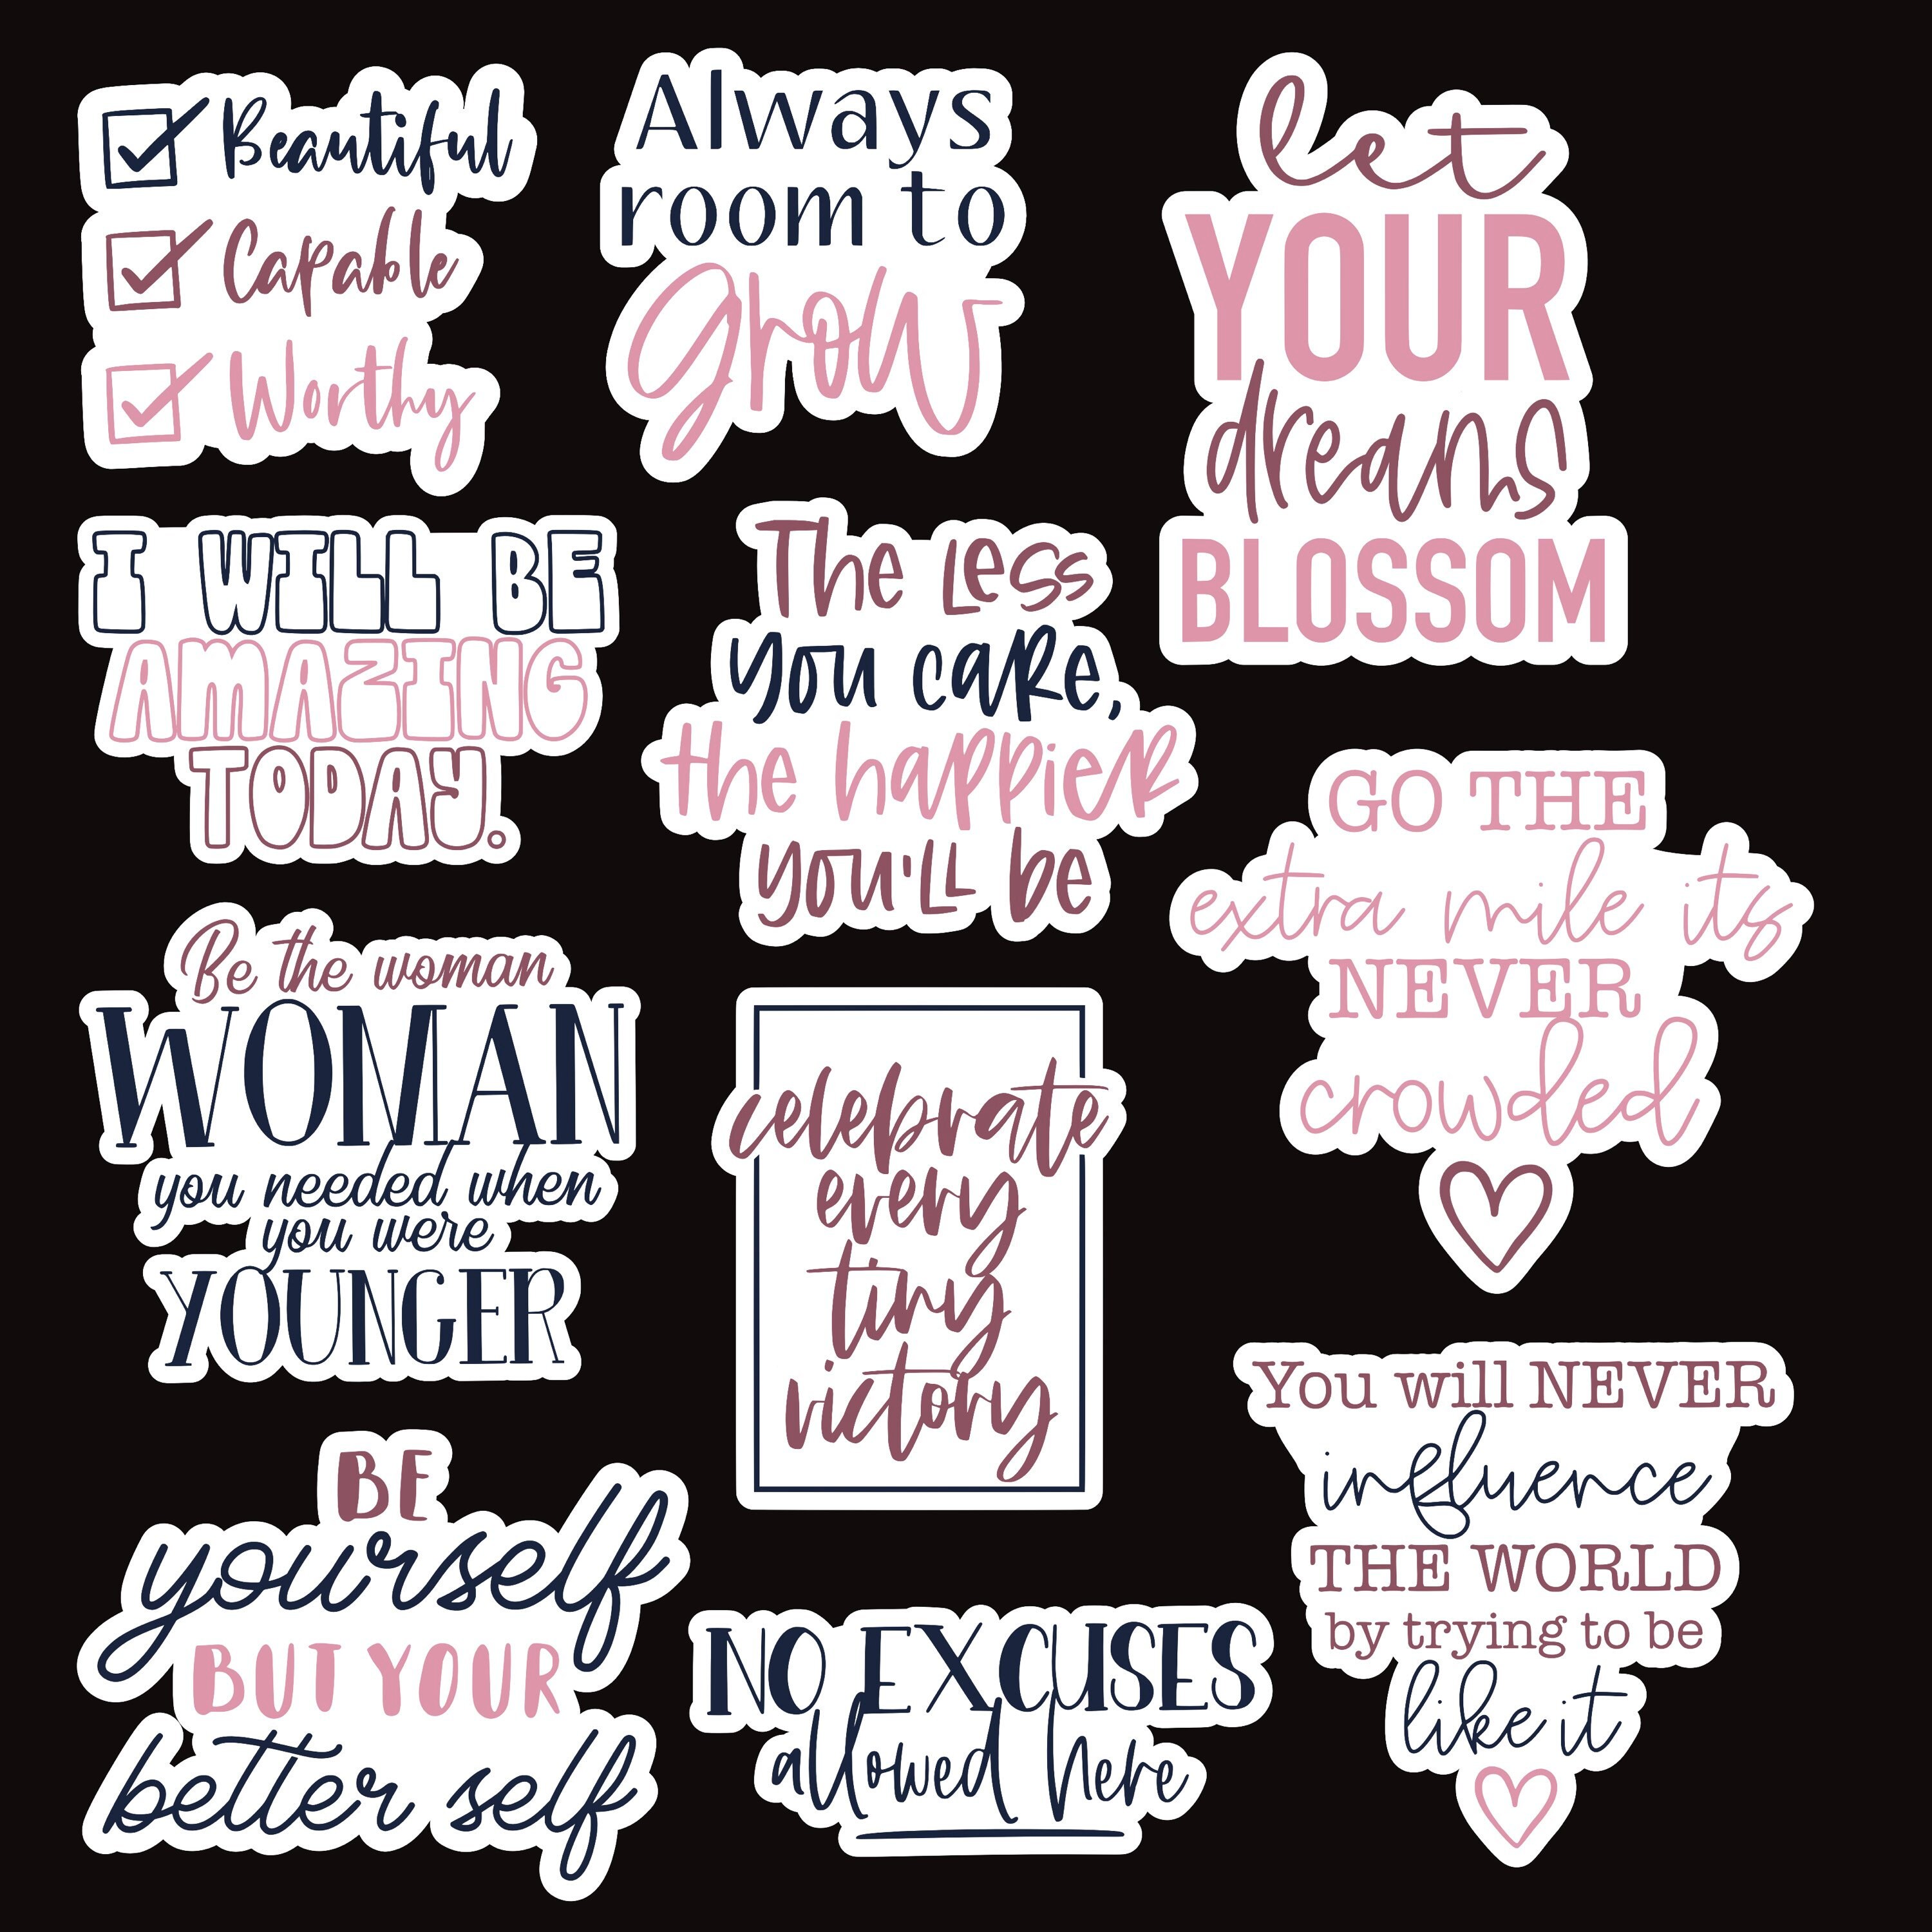 Beautiful
Capable
Worthy
Always
room to
grow
let
YOUR
dreams
BLOSSOM
I WILL BE
AMAZING
TODAY.
The Less
you care,
the happier
you'll be
GO THE
extra mile its
NEVER
crowded
Be the woman
WOMAN
you needed when
you we're
YOUNGER
celebrate
every
tiny
victory
You will NEVER
influence
THE WORLD
by trying to be
like it
BE
yourself
BUT YOUR
better self
NO EXCUSES
allowed here